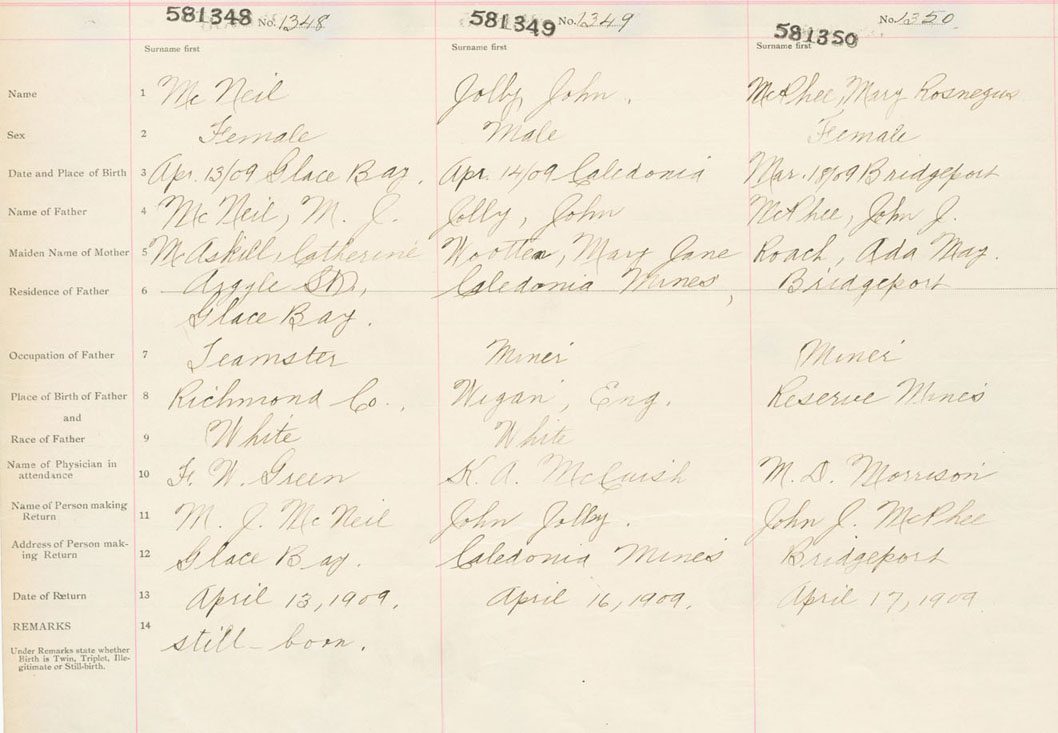 581348 No. 1348 581349 No. 1349 581350 No. 1350
Surname first Surname first Surname first
Name 1 McNeil Jolly, John. McPhee, Mary
Sex 2 Female Male Female
Date and Place of Birth 3 Apr. 13/09 Glace Bay. Apr. 14/09 Caledonia Mar. 18/09 Bridgeport
Name of Father 4 McNeil, M. J. Jolly, John McPhee, John J.
Maiden Name of Mother 5 McAskill, Catherine Wootten, Mary Jane Roach, Ada May.
Residence of Father 6 Argyle St., Caledonia Mines, Bridgeport
Glace Bay.
Occupation of Father 7 Teamster Miner Miner
Place of Birth of Father 8 Richmond Co., Wigan, Eng. Reserve Mines
and
Race of Father 9 White White
Name of Physician in
attendance 10 F. W. Green K. A. McCuish M. D. Morrison
Name of Person making
Return 11 M. J. McNeil John Jolly. John J. McPhee
Address of Person mak-
ing Return 12 Glace Bay. Caledonia Mines Bridgeport
Date of Return 13 April 13, 1909. April 16, 1909. April 17, 1909.
REMARKS 14 still-born.
Under Remarks state whether
Birth is Twin, Triplet, Ille-
gitimate or Still-birth.